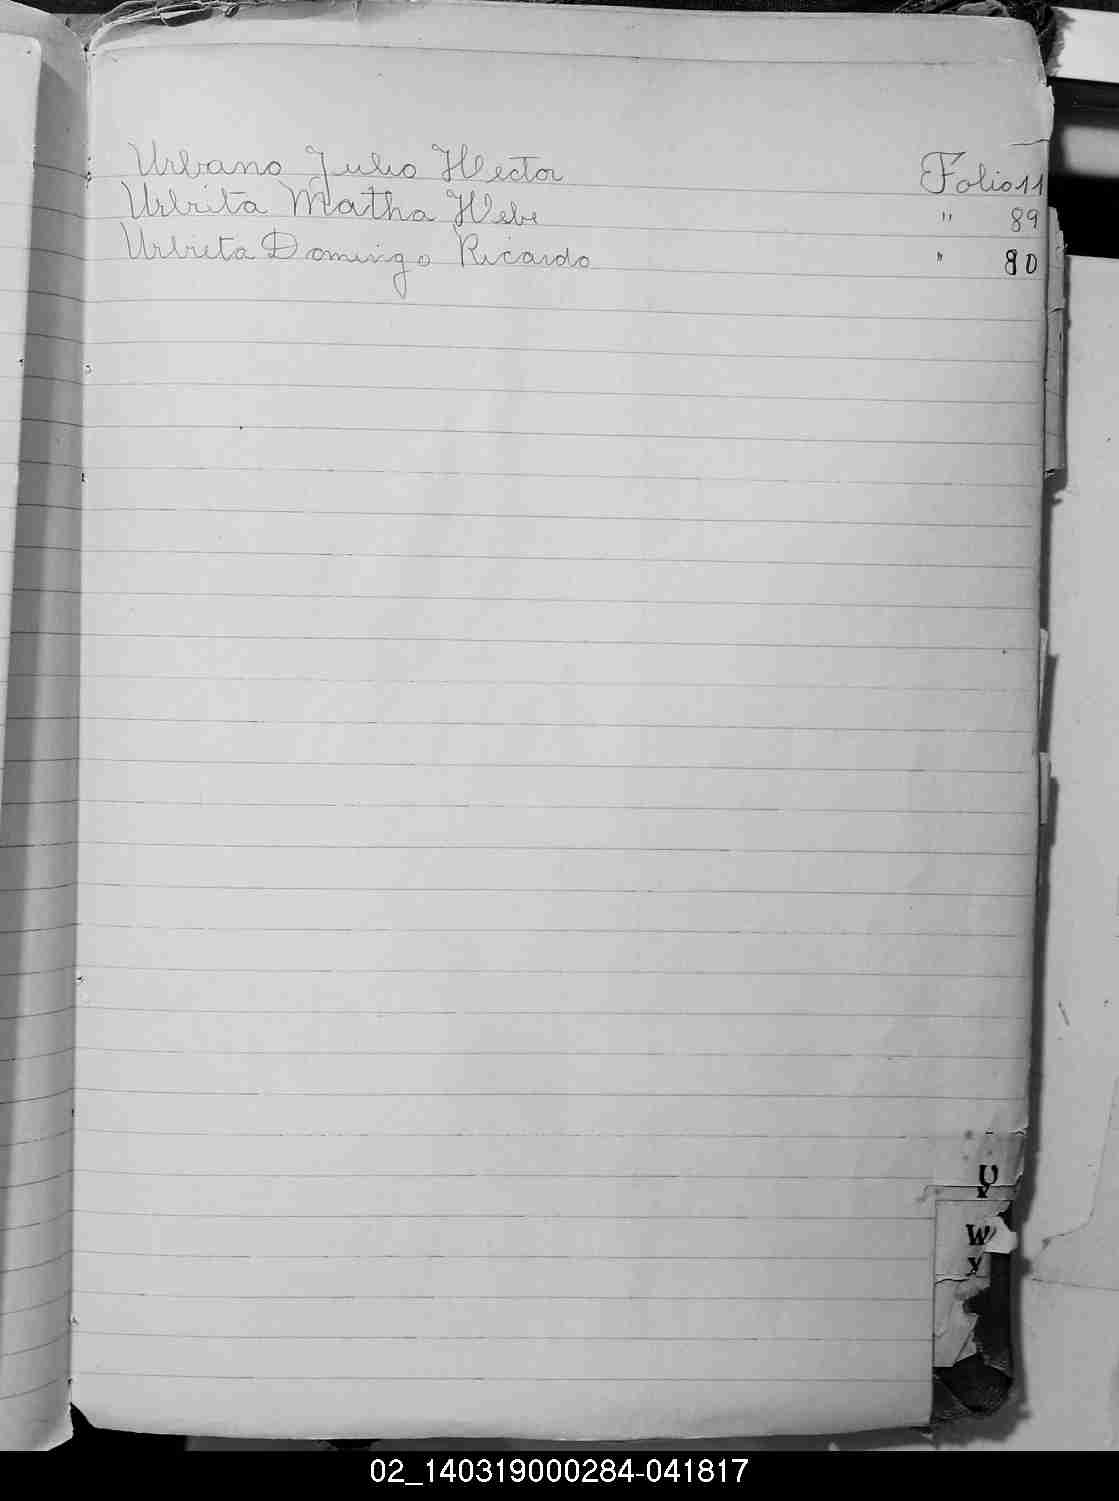 Urbano Julio Hector Folio 11
Urbita Matha Hebe " 89
Urbieta Domingo Ricardo " 80
U
W
X
02_140319000284-041817